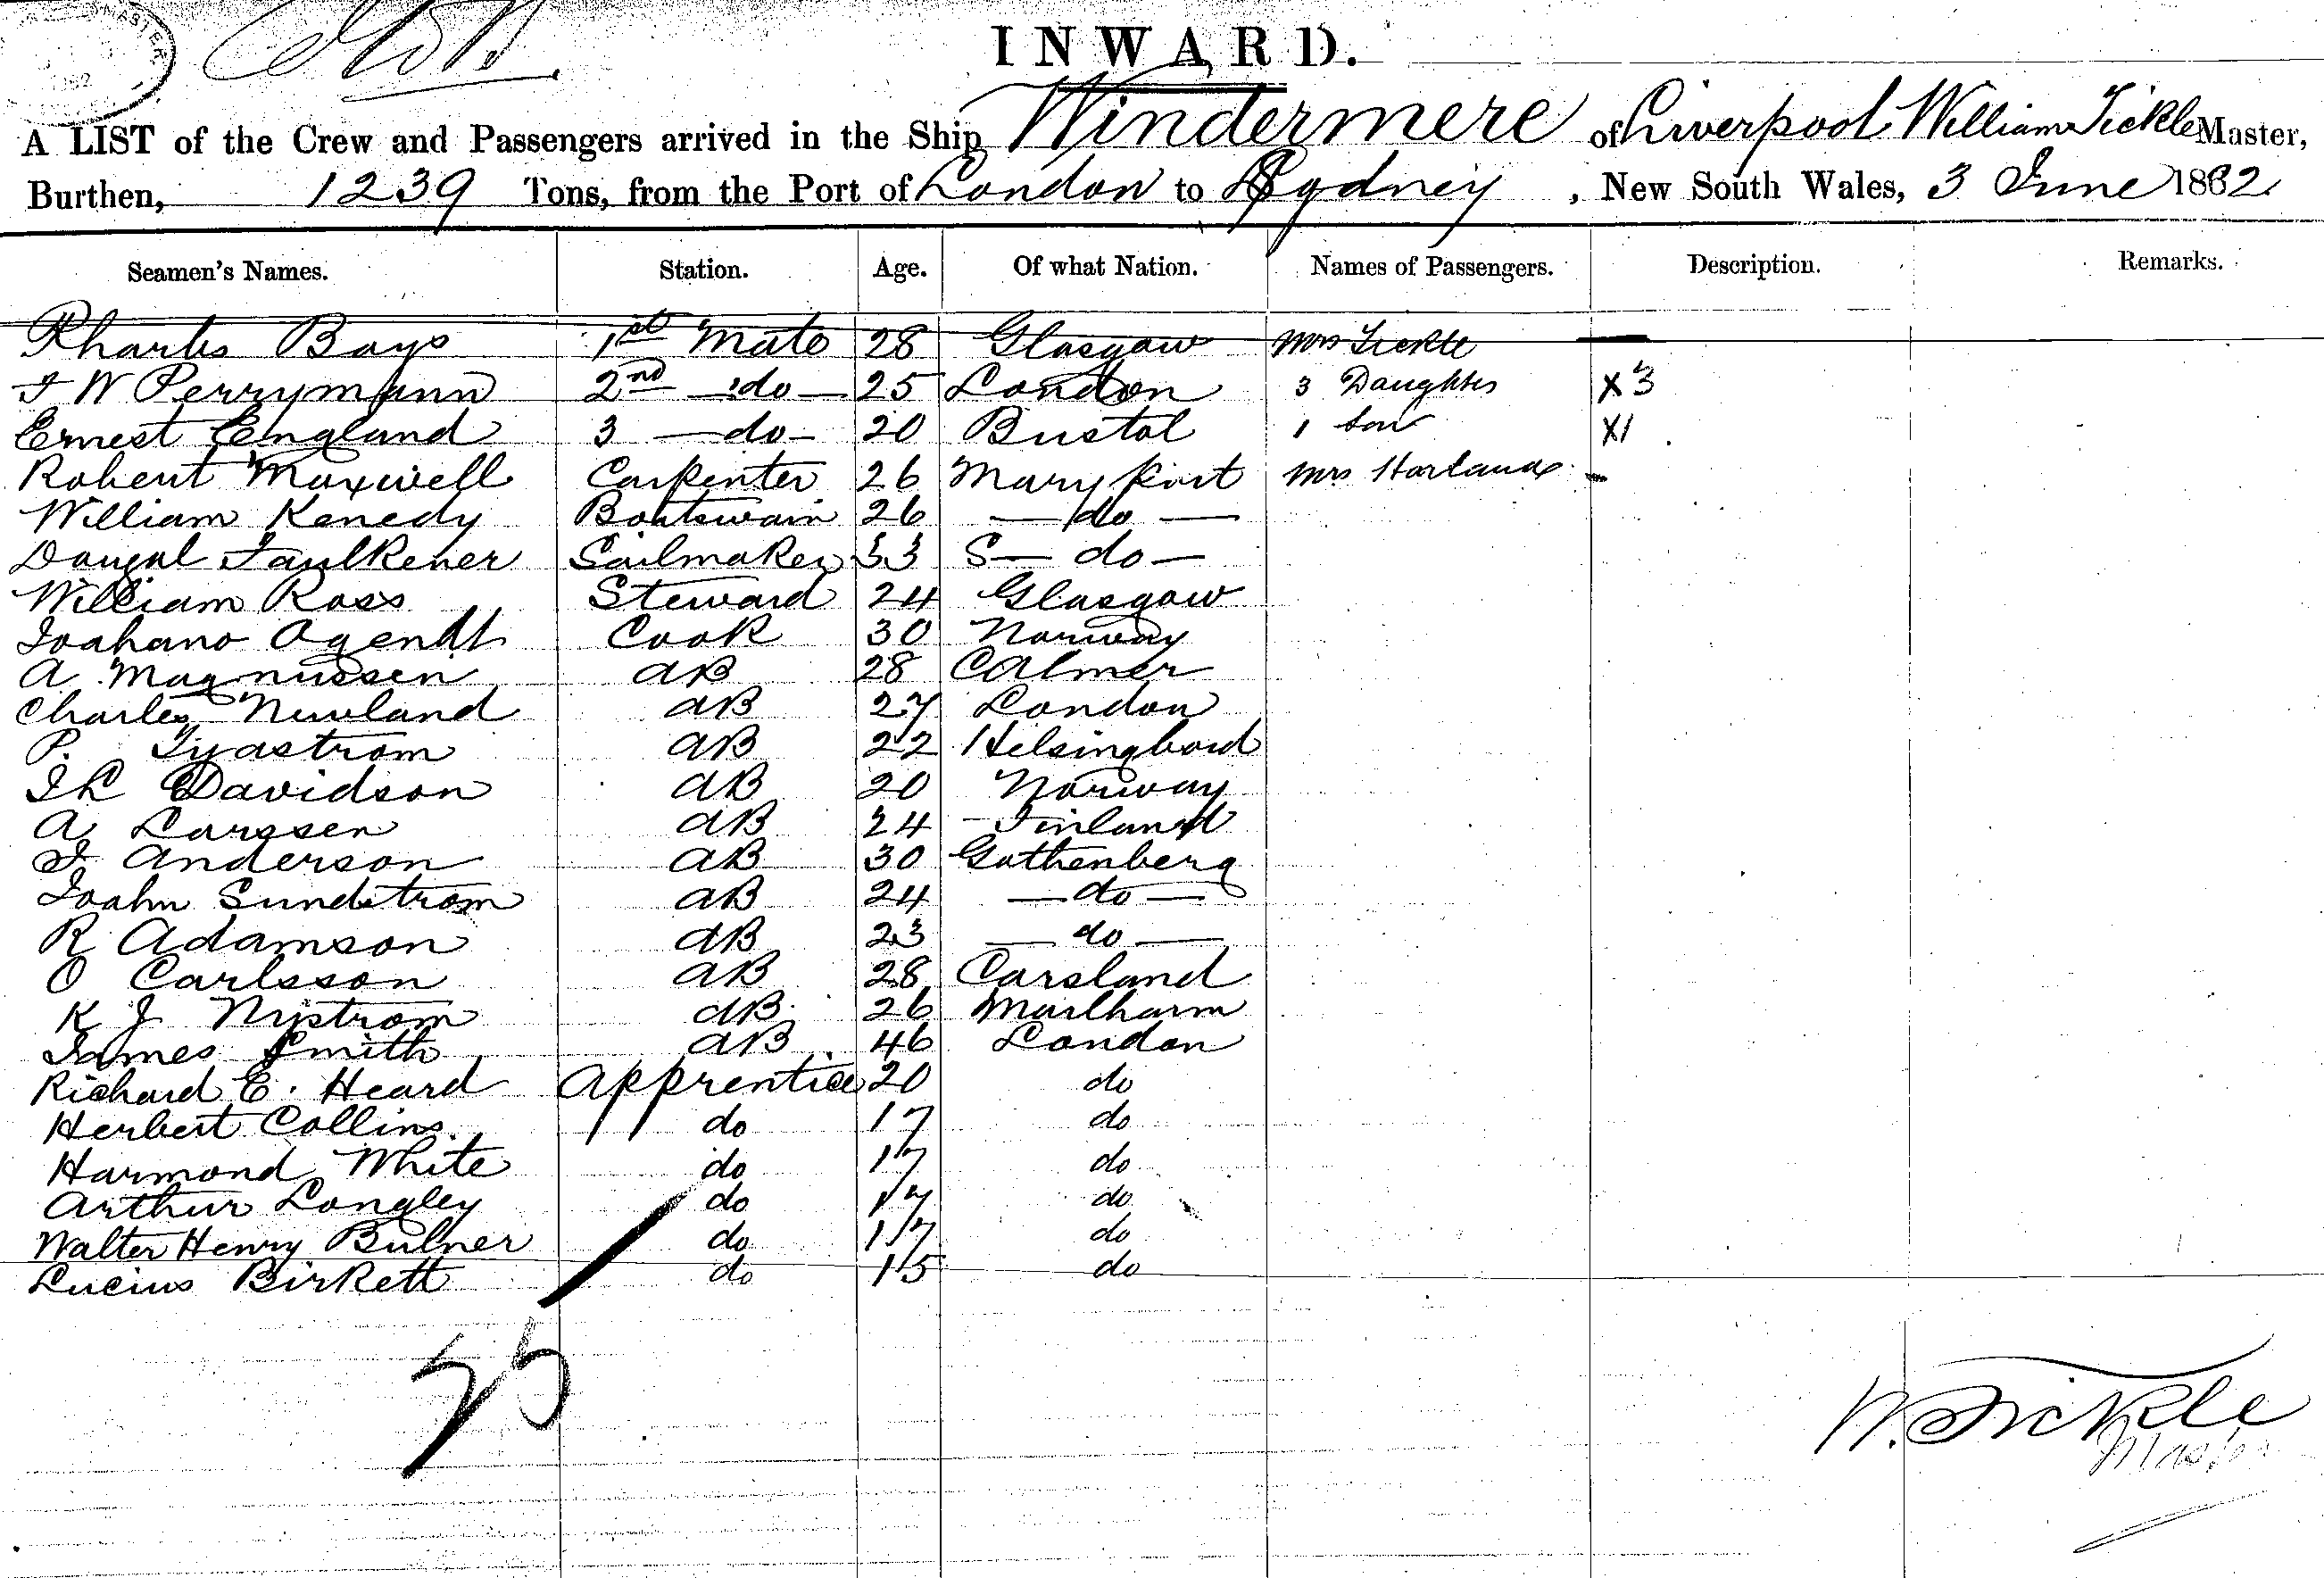 INWARD.
A LIST of the Crew and Passengers arrived in the Ship Windermere of Liverpool William Tickle Master,
Burthen, 1239 Tons, from the Port of London to Sydney, New South Wales, 3 June 1882
Seamen's Names. Station. Age. Of what Nation. Names of Passengers. Description. Remarks.
Charles Bays 1st Mate 28 Glasgow Mrs Tickle —
J W Perrymann 2nd — do — 25 London 3 Daughters X 3
Ernest England 3 — do — 20 Bristol 1 Son X1
Robert Maxwell Carpenter 26 Maryport Mrs Harland -
William Kenedy Boatswain 26 — do —
Dougal Faulkener Sailmaker 33 S — do —
William Ross Steward 24 Glasgow
Joahano Agendt Cook 30 Norway
A Magnussen AB 28 Calmer
Charles Newland AB 27 London
P. AB 22 Helsingbord
J L Davidson AB 20 Norway
A Larssen AB 24 Finland
J Anderson AB 30 Gothenberg
Joahn Sundstrom AB 24 — do —
R Adamson AB 23 — do —
O Carlsson AB 28 Carsland
K J Nystrom AB 26
James Smith AB 46 London
Richard E. Heard Apprentice 20 do
Herbert Collins do 17 do
Harmond White do 17 do
Arthur Longley do 17 do
Walter Henry Bulner do 17 do
Lucius Birkett do 15 do
25
W. Tickle
Master